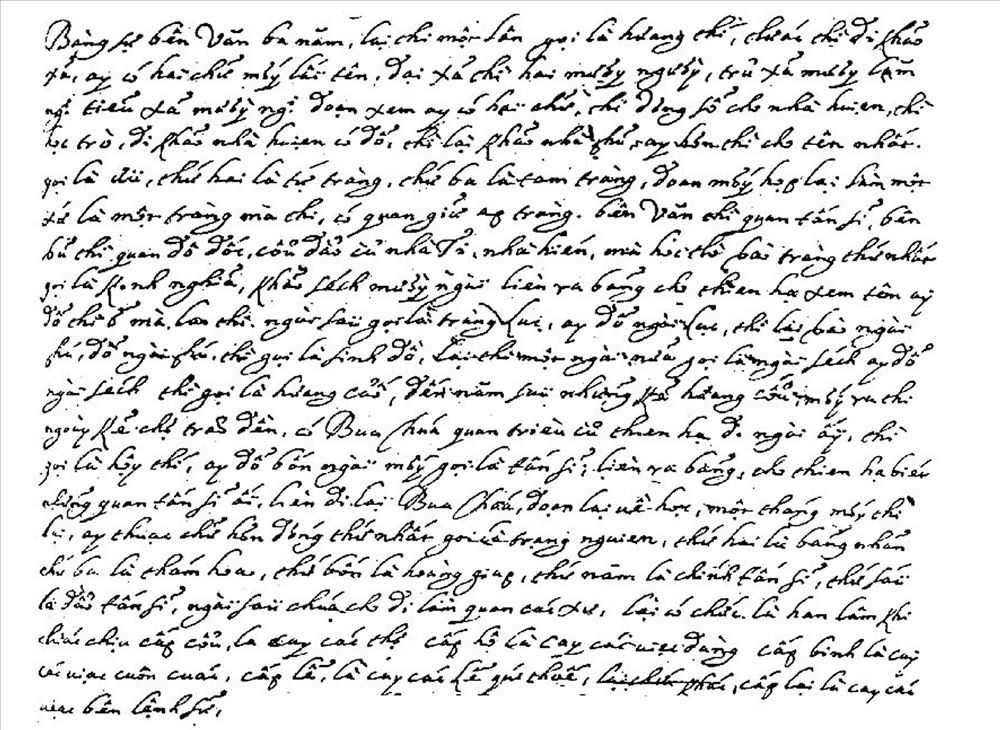 Bàng sự bên Văn ba năm, lại thi một lần gọi là hương thí, trước thì đi khảo
xã, ay có hai chữ mấy lấi tên, đại xã thì hai mươy người, trủ xã mươy lăm
ngừ tiểu xã mươy ngừ đoạn xem ay có hay chữ, thì dóng sổ cho nhà huiẹn, thì
học trò, đi khảo nhà huiẹn có đổ, thì lại khảo nhà phủ, ay hơn thì cho tên nhất.
gọi là thứ hai là tứ tràng, thứ ba là tam tràng, đoạn mấy họp lại làm một
xứ là một tràng mà thi, có quan giữ ap tràng. bên Văn thì quan tấn sĩ, bên
bủ thì quan đô đốc, cũ đầo củ nhà Ti, nhà hién, mà học thò bào tràng thứ nhất
gọi là kinh nghĩa, khảo sách mươy ngài liẻn ra bảng cho thien hạ xem tên ay
đổ thì mà, lơn thì. ngài sau gọi là tràng luc, ay đổ ngài luc, thì lại bào ngài
fú, đổ ngài fú, thì gọi là sinh đồ, lại thi một ngài nữa gọi là ngài sách ay đổ
ngài sách thì gọi là hương cấ, đến năm sau những kẻ hương cấ, mấy ra thi
ngoày kẻ chợ trao đền, có Bua Chúa quan trièu củ thien hạ đi ngài ấy, thì
gọi là hôy thí, ay đổ bốn ngài mấy gọi là tấn sĩ, liền ra bảng, cho thien hạ biét
những quan tấn sĩ ấi, liền đi lạy Bua Chúa, đoạn lại uề học, một tháng mấy thì
lại, ay thuạc chữ hơn đóng thứ nhất gọi là trạng nguien, thứ hai là bảng nhãn
thứ ba là thám hoa, thứ bốn là hoàng giap, thứ năm là chính tấn sĩ, thứ sáu
là đầo tấn sĩ, ngài sau chúa cho đi làm quan các xứ, lại có chức là han lâm khi
khác chịu cấp củ, là cay các thợ cấp hộ là cay các uiẹc đàng cấp binh là cay
các uiạc cuôn cuác, cấp lễ, là cay các lễ qué thuế, cấp lại là cay các
uiạc bên lệnh sử,